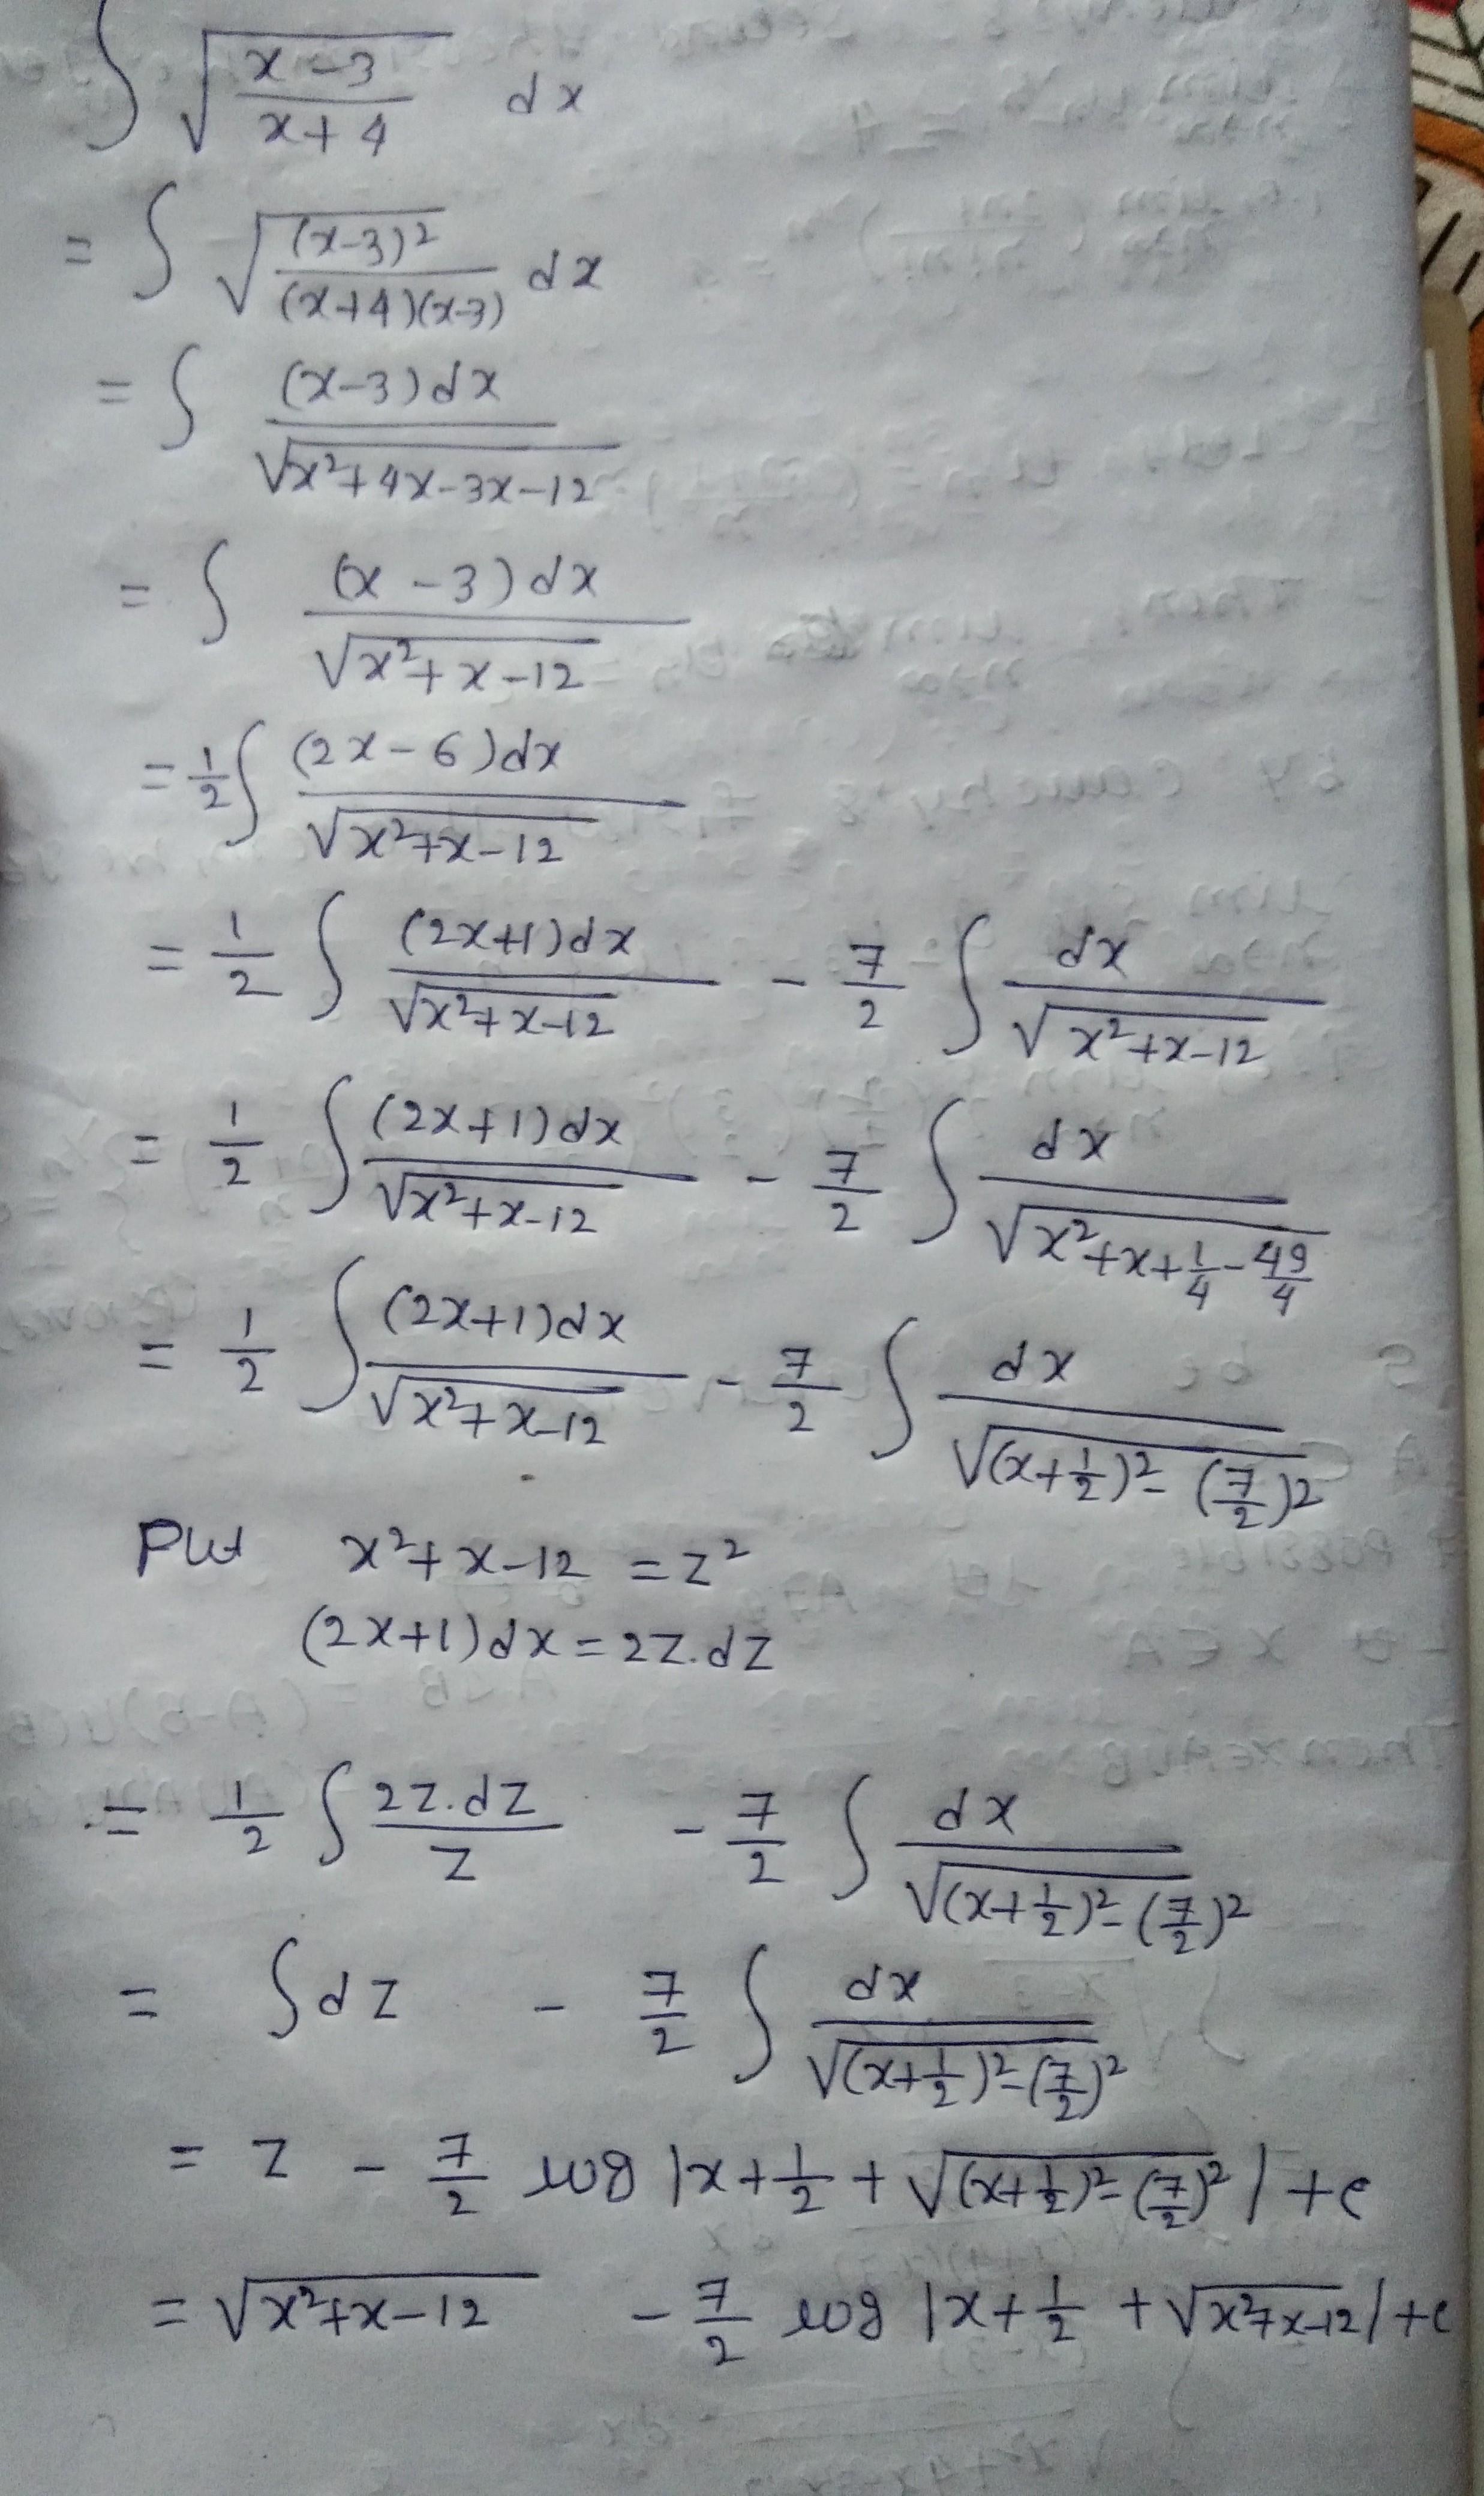 ∫ √((x-3)/(x+4)) dx
= ∫ √((x-3)²/((x+4)(x-3))) dx
= ∫ (x-3)dx/√(x²+4x-3x-12)
= ∫ (x-3)dx/√(x²+x-12)
= 1/2 ∫ (2x-6)dx/√(x²+x-12)
= 1/2 ∫ (2x+1)dx/√(x²+x-12) - 7/2 ∫ dx/√(x²+x-12)
= 1/2 ∫ (2x+1)dx/√(x²+x-12) - 7/2 ∫ dx/√(x²+x+1/4-49/4)
= 1/2 ∫ (2x+1)dx/√(x²+x-12) - 7/2 ∫ dx/√((x+1/2)²-(7/2)²)
Put x²+x-12 = z²
(2x+1)dx = 2z.dz
= 1/2 ∫ 2z.dz/z - 7/2 ∫ dx/√((x+1/2)²-(7/2)²)
= ∫dz - 7/2 ∫ dx/√((x+1/2)²-(7/2)²)
= z - 7/2 log |x+1/2 + √((x+1/2)²-(7/2)²)| + c
= √(x²+x-12) - 7/2 log |x+1/2 + √(x²+x-12)| + c